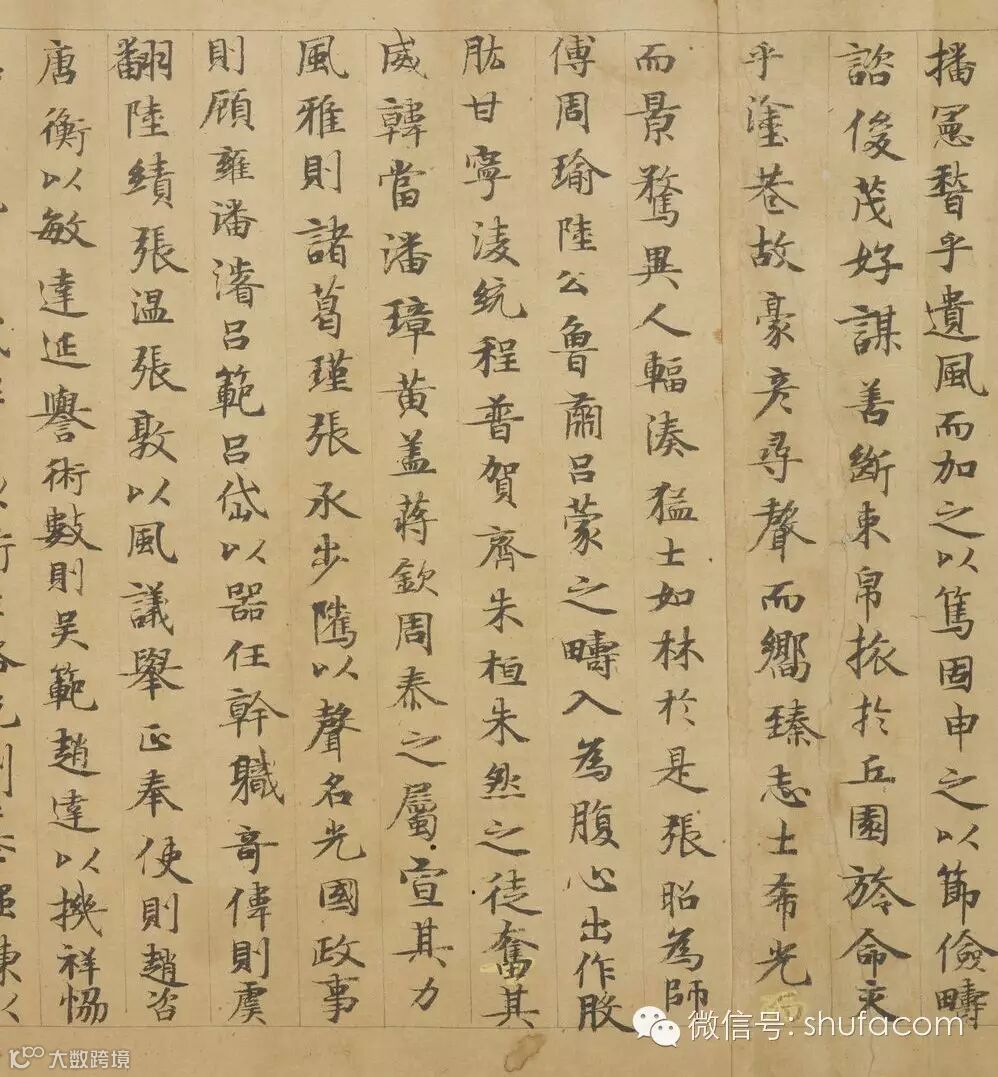 播憲稽乎遺風而加之以篤固申之以節儉疇
諮俊茂好謀善斷束帛旅於丘園旍命交
乎塗巷故豪彦尋聲而嚮臻志士希光
而景騖異人輻湊猛士如林於是張昭為師
傅周瑜陸公魯肅呂蒙之疇入為腹心出作股
肱甘寧淩統程普賀齊朱桓朱然之徒奮其
威韓當潘璋黄盖蔣欽周泰之屬宣其力
風雅則諸葛瑾張承步隲以聲名光國政事
則顧雍潘濬呂範呂岱以器任幹職奇偉則虞
翻陸績張温張敦以風議舉正奉使則趙咨
唐衡以敏達延譽術數則吴範趙達以機祥恊
微信号: shufacom
大数跨境